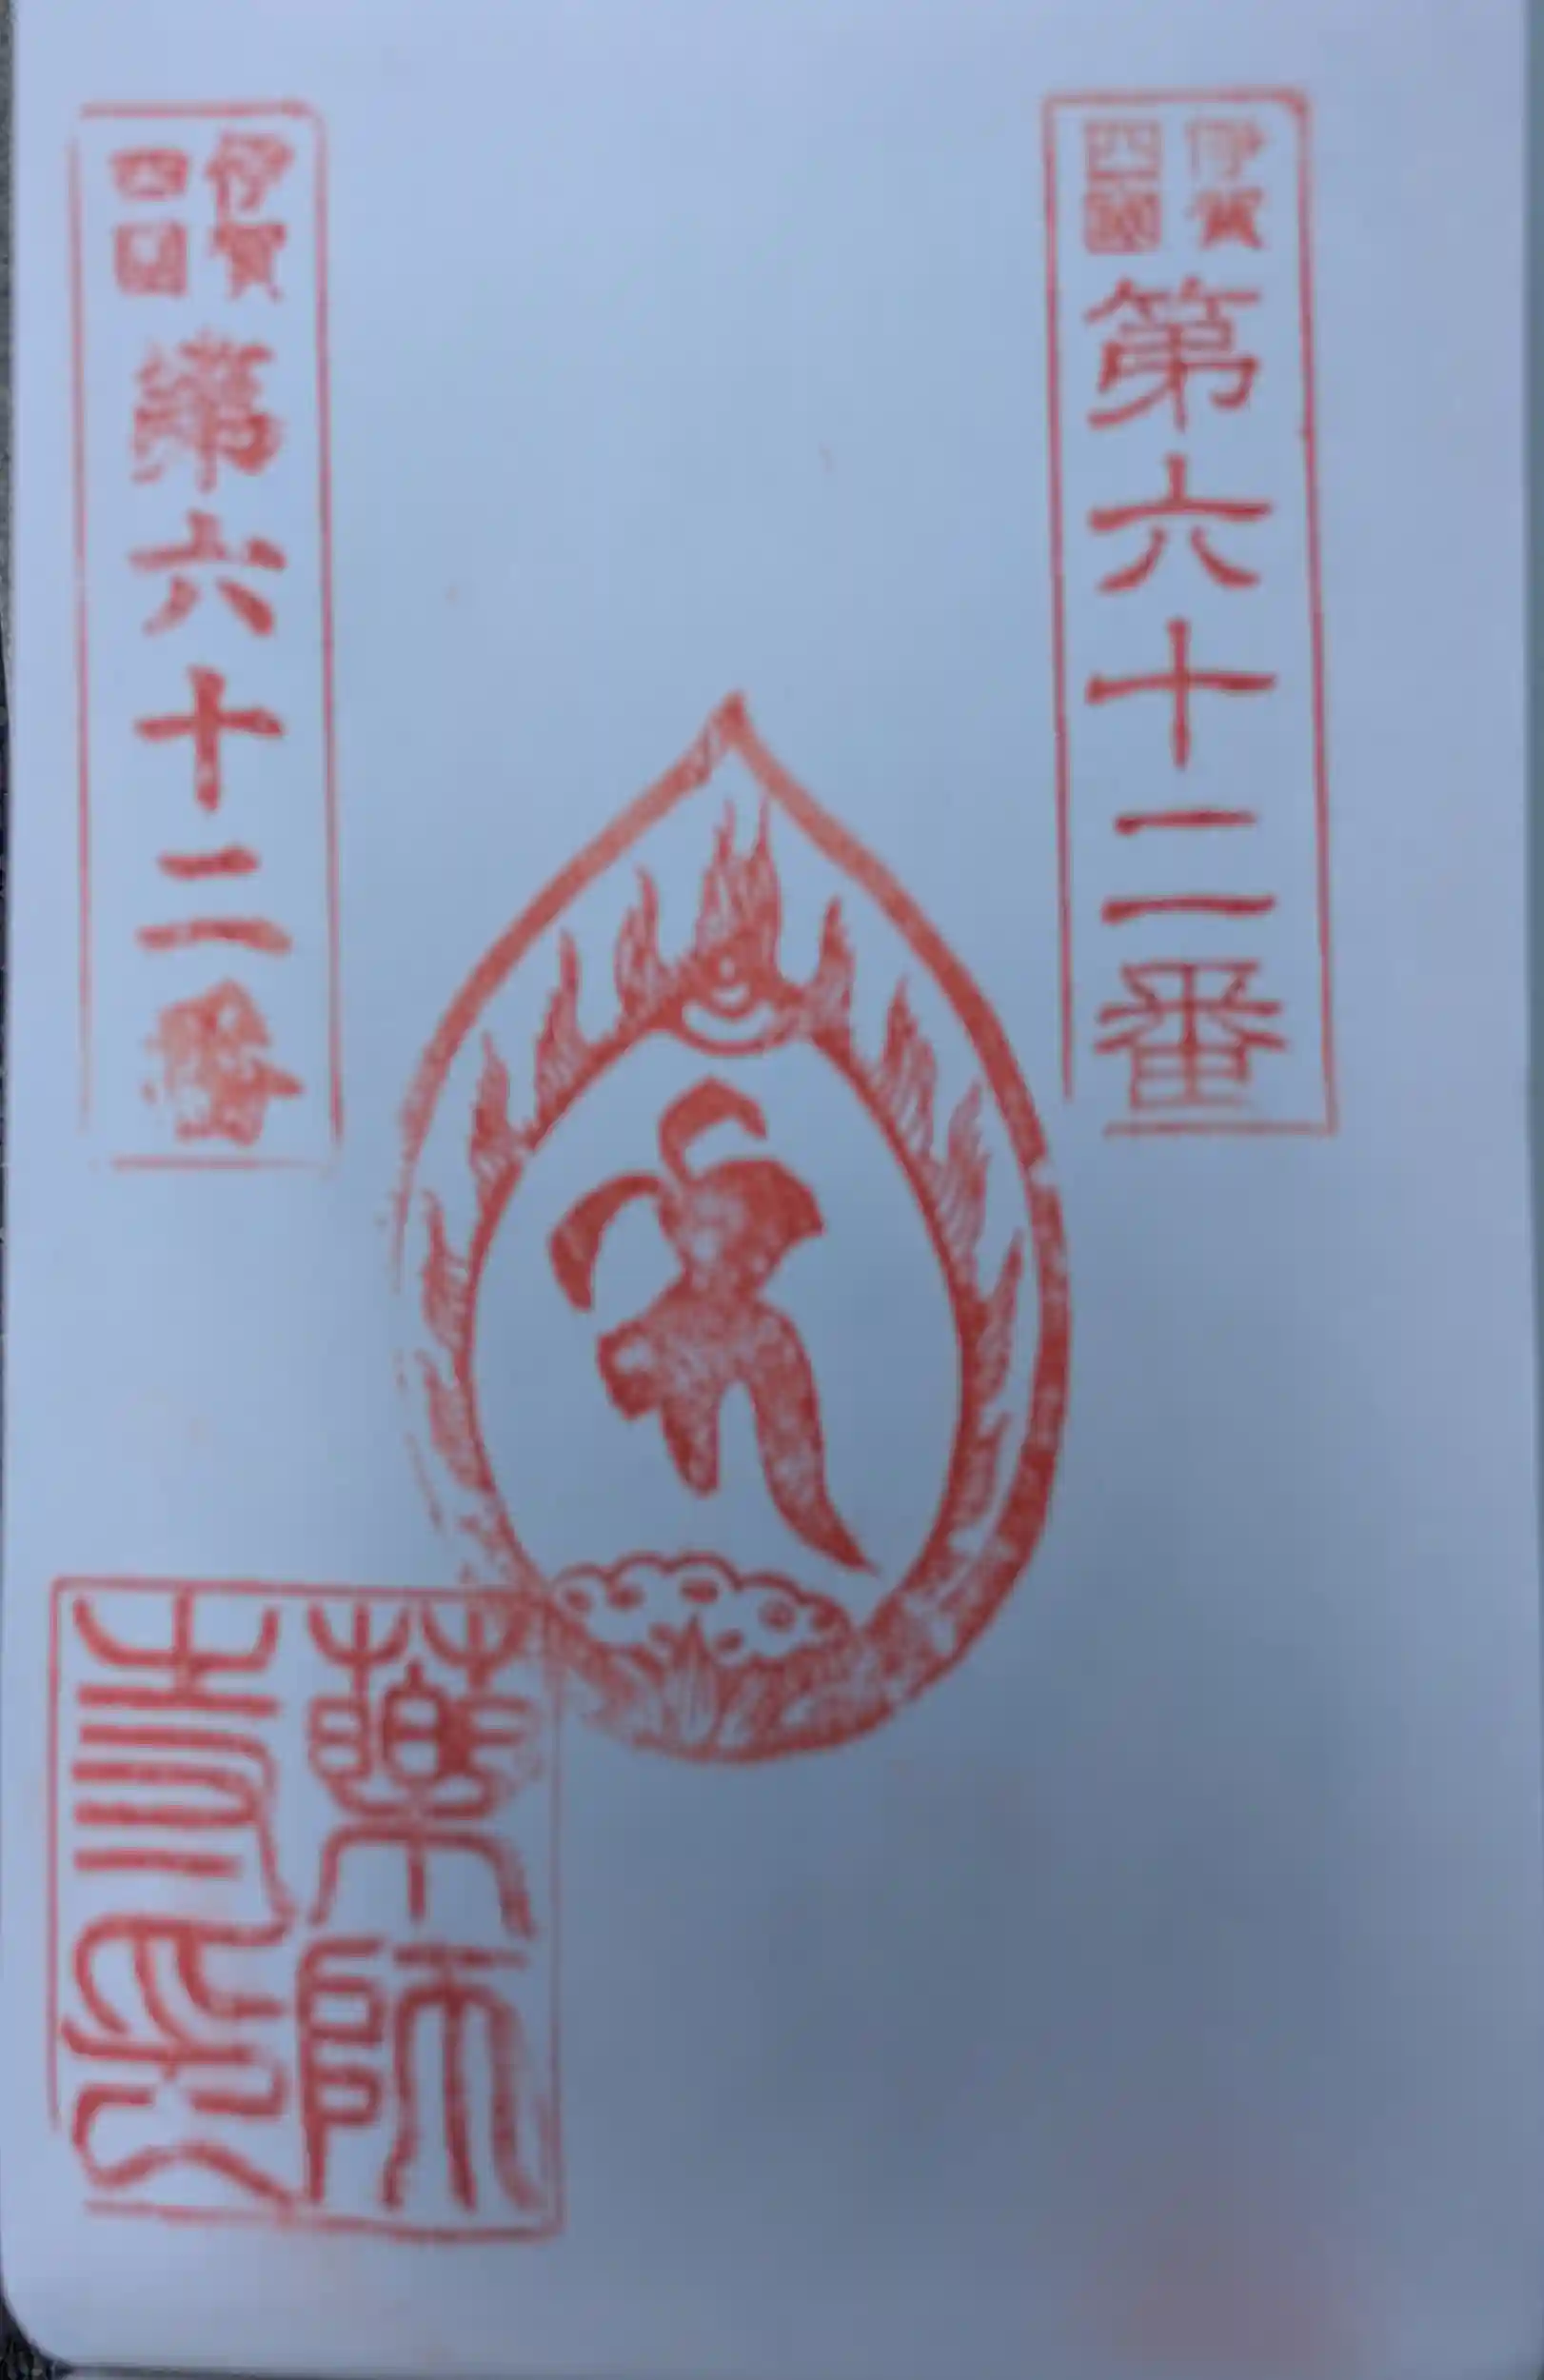 伊賀
四國
第六十二番
伊賀
四國
第六十二番
藥師
寺印